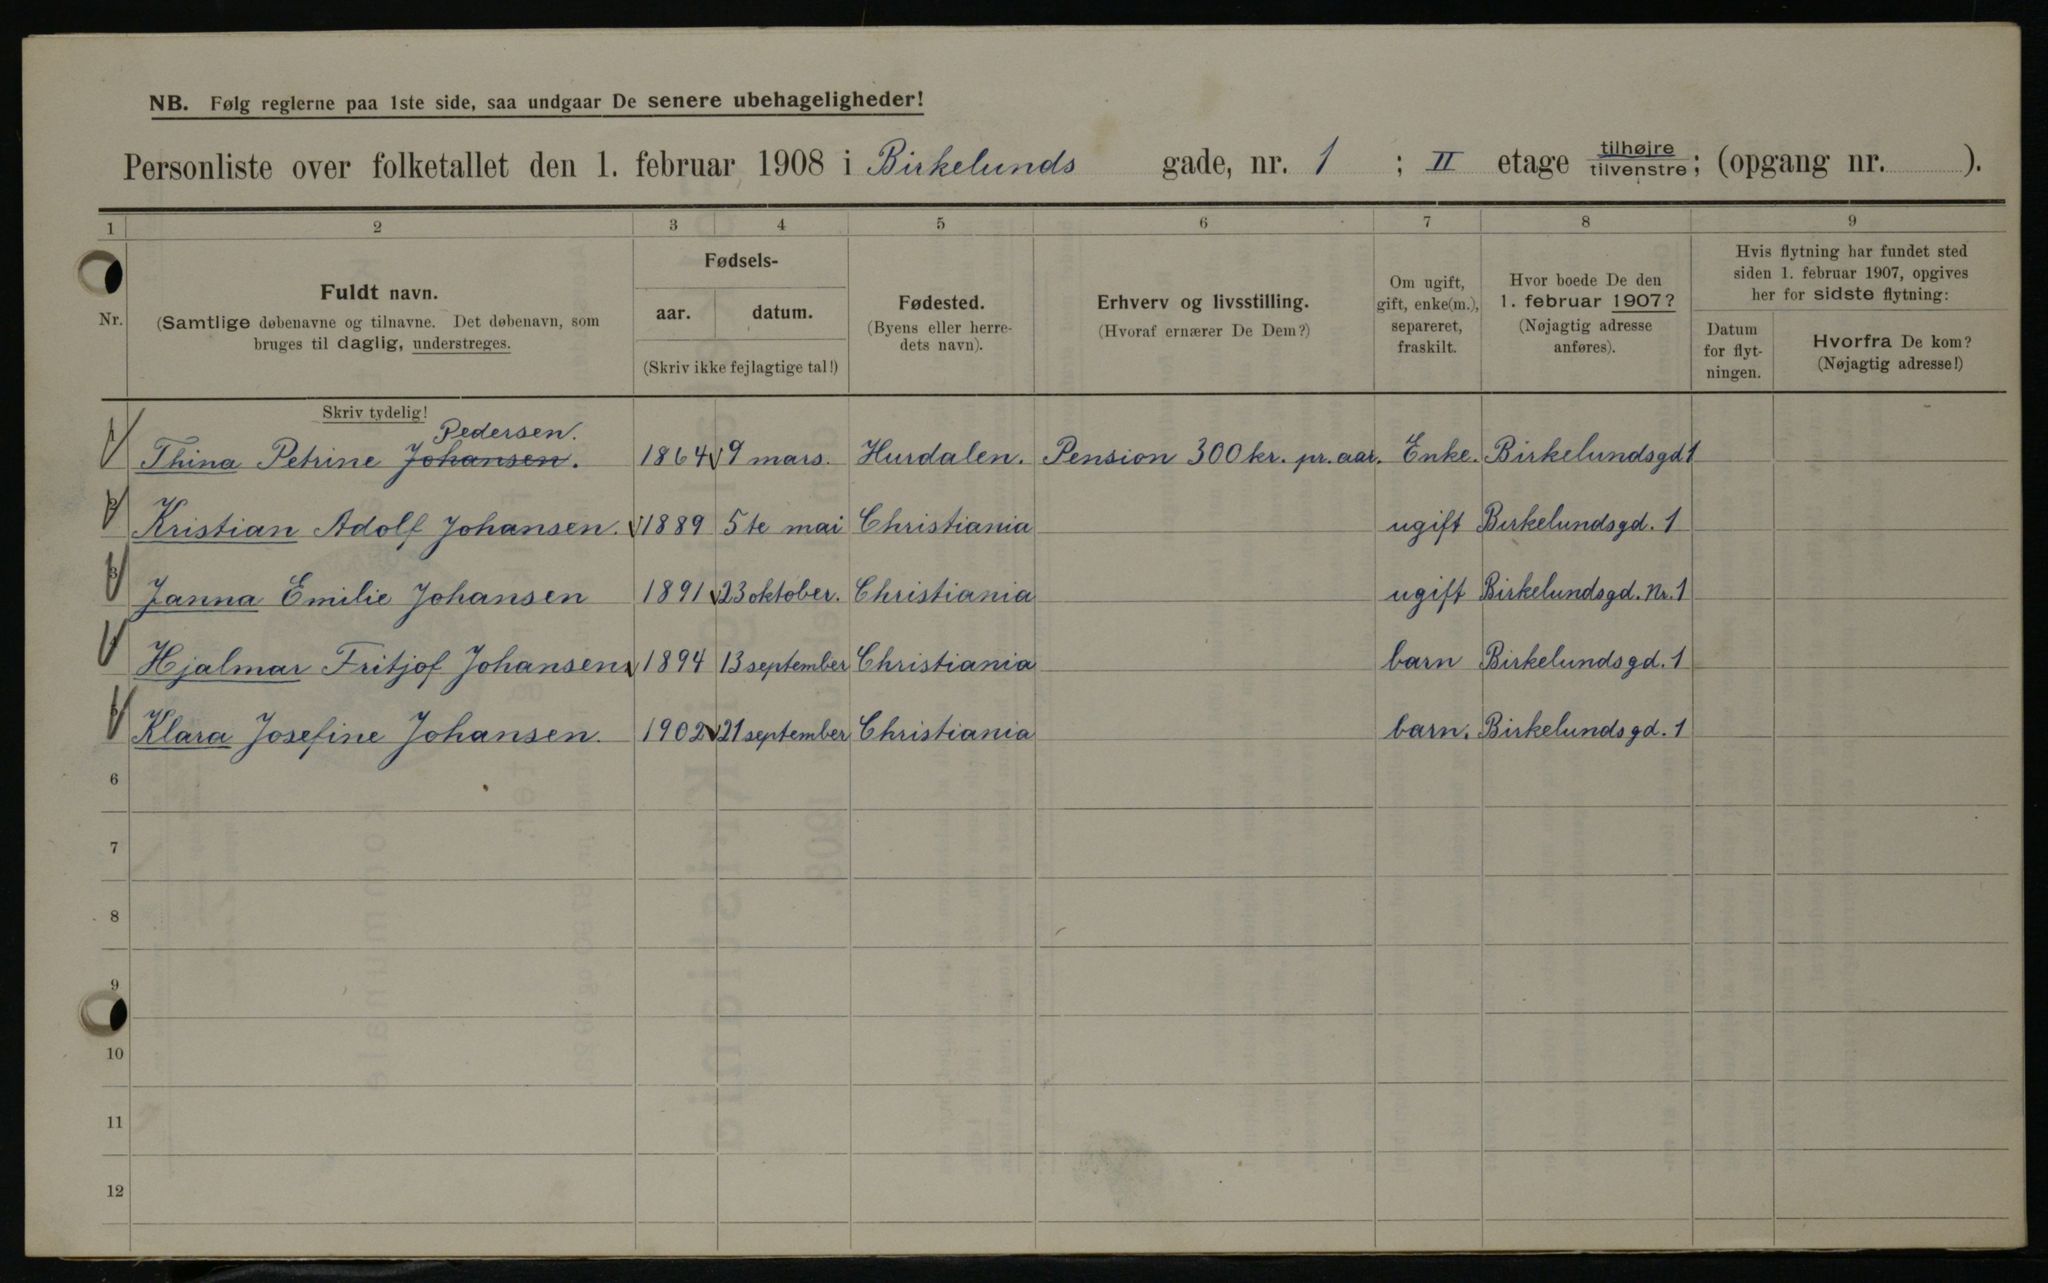 NB. Følg reglerne paa 1ste side, saa undgaar De senere ubehageligheder!
Personliste over folketallet den 1. februar 1908 i Birkelunds gade, nr. 1 ; II etage tilhøjre tilvenstre; (opgang nr. ).
1 2 3 4 5 6 7 8 9
Nr.
Fuldt navn.
(Samtlige døbenavne og tilnavne. Det døbenavn, som
bruges til daglig, understreges.
Fødsels-
aar. datum.
(Skriv ikke fejlagtige tal!)
Fødested.
(Byens eller herre-
dets navn).
Erhverv og livsstilling.
(Hvoraf ernærer De Dem?)
Om ugift,
gift, enke(m.),
separeret,
fraskilt.
Hvor boede De den
1. februar 1907?
(Nøjagtig adresse
anføres).
Hvis flytning har fundet sted
siden 1. februar 1907, opgives
her for sidste flytning:
Datum
for flyt-
ningen.
Hvorfra De kom?
(Nøjagtig adresse!)
Skriv tydelig!
Pedersen.
1 Thina Petrine Johansen. 1864 9 mars. Hurdalen. Pension 300 kr. pr. aar. Enke. Birkelundsgd 1
2 Kristian Adolf Johansen. 1889 5te mai Christiania ugift Birkelundsgd. 1
3 Janna Emilie Johansen 1891 23 oktober. Christiania ugift Birkelundsgd. Nr. 1
4 Hjalmar Fritjof Johansen 1894 13 september Christiania barn Birkelundsgd. 1
5 Klara Josefine Johansen. 1902 21 september Christiania barn. Birkelundsgd. 1
6
7
8
9
10
11
12